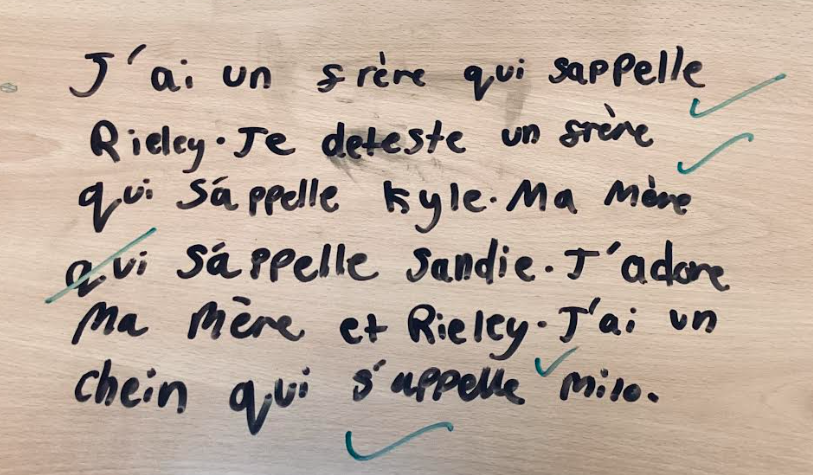 J'ai un frère qui sappelle
Rieley. Je deteste un frère
qui s'appelle Kyle. Ma Mère
qui s'appelle Sandie. J'adore
Ma Mère et Rieley. J'ai un
chein qui s'appelle Milo.